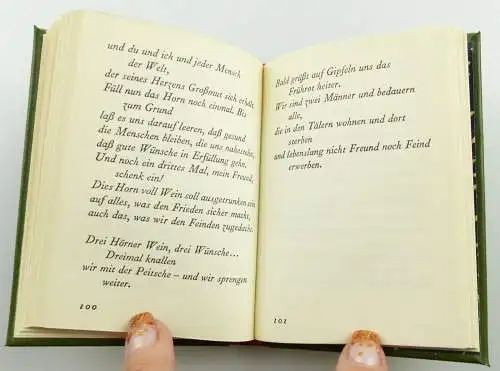 und du und ich und jeder Mensch
der Welt,
der seines Herzens Großmut sich erhält.
Füll nun das Horn noch einmal. Bis
zum Grund
laß es uns darauf leeren, daß gesund
die Menschen bleiben, die uns nahestehn,
daß gute Wünsche in Erfüllung gehn.
Und noch ein drittes Mal, mein Freund,
schenk ein!
Dies Horn voll Wein soll ausgetrunken sein
auf alles, was den Frieden sicher macht,
auch das, was wir den Feinden zugedacht.
Drei Hörner Wein, drei Wünsche...
Dreimal knallen
wir mit der Peitsche – und wir sprengen
weiter.
100
Bald grüßt auf Gipfeln uns das
Frührot heiter.
Wir sind zwei Männer und bedauern
alle,
die in den Tälern wohnen und dort
sterben
und lebenslang nicht Freund noch Feind
erwerben.
101